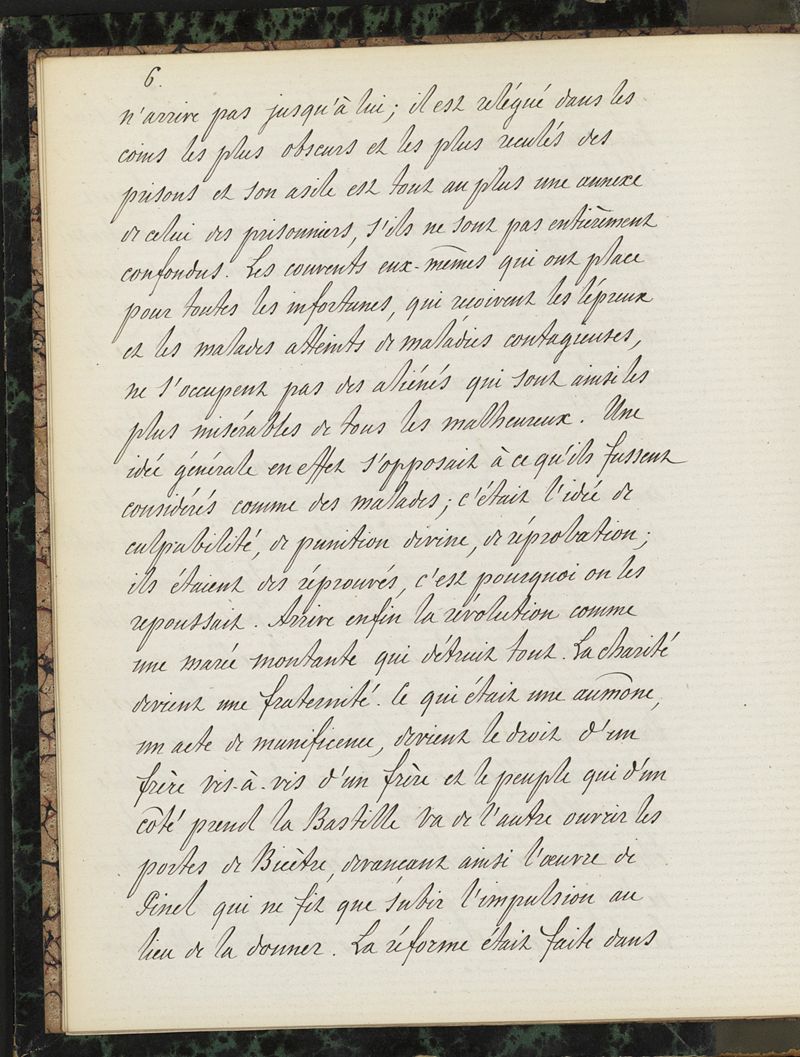 6.
n'arrive pas jusqu'à lui; il est relégué dans les
coins les plus obscurs et les plus reculés des
prisons et son asile est tout au plus une annexe
de celui des prisonniers, s'ils ne sont pas entièrement
confondus. Les couvents eux-mêmes qui ont place
pour toutes les infortunes, qui recoivent les lépreux
et les malades atteints de maladies contagieuses,
ne s'occupent pas des aliénés qui sont ainsi les
plus misérables de tous les malheureux. Une
idée générale en effet s'opposait à ce qu'ils fussent
considérés comme des malades; c'était l'idée de
culpabilité, de punition divine, de réprobation;
ils étaient des réprouvés, c'est pourquoi on les
repoussait. Arrive enfin la révolution comme
une marée montante qui détruit tout. La charité
devient une fraternité. Ce qui était une aumône,
un acte de munificence, devient le droit d'un
frère vis-à-vis d'un frère et le peuple qui d'un
côté prend la Bastille va de l'autre ouvrir les
portes de Bicêtre, devancant ainsi l'œuvre de
Pinel qui ne fit que subir l'impulsion au
lieu de la donner. La réforme était faite dans